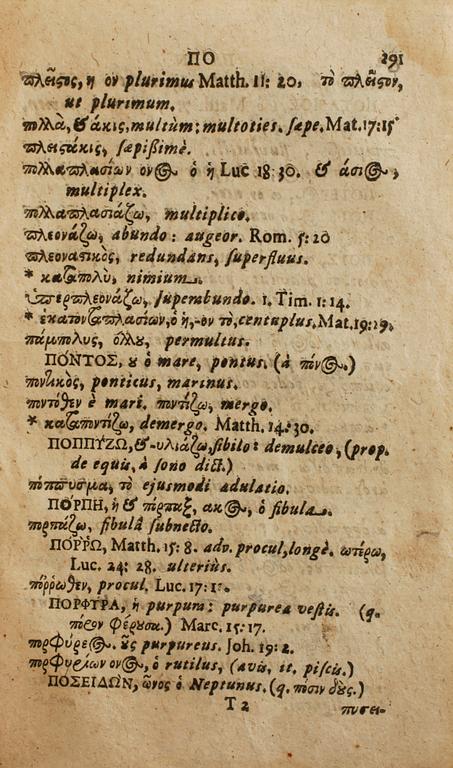 ΠΟ 291
πλεῖστος, η ον plurimus Matth. 11: 20, τὸ πλεῖστον,
ut plurimum.
πολλὰ, & άκις, multùm: multoties. sæpe. Mat. 17:15
πλειστάκις, sæpißimè.
πολλαπλασίων ονος ὁ ἡ Luc 18 30. & άσιος,
multiplex.
πολλαπλασιάζω, multiplico.
πλεονάζω, abundo: augeor. Rom. 5: 20
πλεοναστικὸς, redundans, superfluus.
* καταπολὺ, nimium.
ὑπερπλεονάζω, superabundo. 1. Tim. 1: 14.
* ἑκατονταπλασίων, ὁ ἡ, -ον τὸ, centuplus. Mat. 19:29.
πάμπολυς, όλλυ, permultus.
ΠΟΝΤΟΣ, ου ὁ mare, pontus. (à πόνος.)
ποντικὸς, ponticus, marinus.
ποντόθεν è mari. ποντίζω, mergo.
* καταποντίζω, demergo. Matth. 14: 30.
ΠΟΠΠΥΖΩ, & -υλιάζω, sibilo: demulceo, (prop.
de equis, à sono dict.)
πόππυσμα, τὸ ejusmodi adulatio.
ΠΟΡΠΗ, ἡ & πόρπαξ, ακος, ὁ fibula.
πορπάζω, fibulâ subnecto.
ΠΟΡΡΩ, Matth. 15: 8. adv. procul, longè. ωτέρω,
Luc. 24: 28. ulteriùs.
πόῤῥωθεν, procul. Luc. 17: 12.
ΠΟΡΦΥΡΑ, ἡ purpura: purpurea vestis. (q.
πόρον φέρουσα.) Marc. 15: 17.
πορφύρεος. οῦς purpureus. Joh. 19: 2.
πορφυρίων ονος, ὁ rutilus, (avis, it. piscis.)
ΠΟΣΕΙΔΩΝ, ῶνος ὁ Neptunus. (q. πόσιν δούς.)
T 2 ποσει-